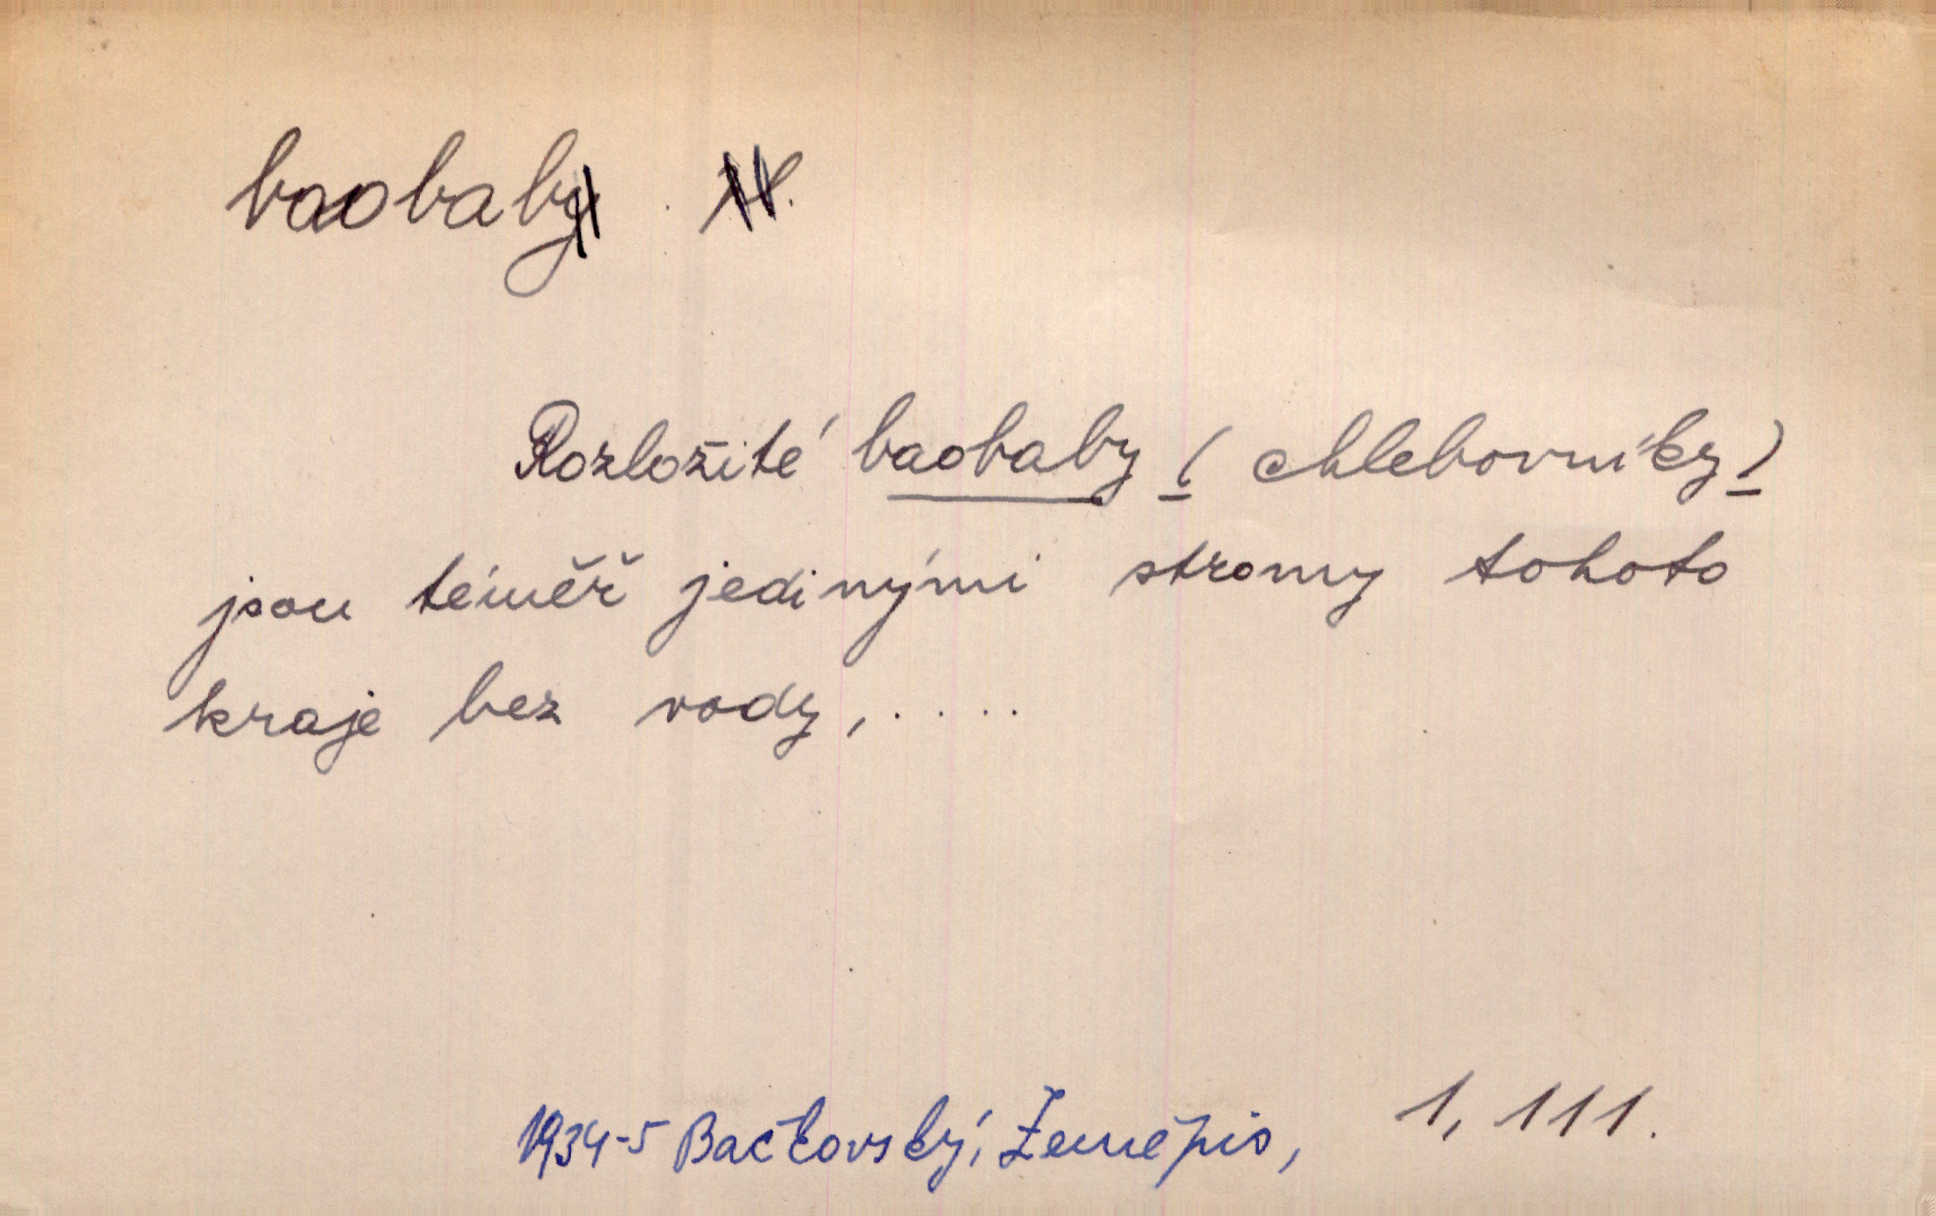 baobaby
Rozložité baobaby ( chlebovníky )
jsou téměř jedinými stromy tohoto
kraje bez vody, ....
1934-5 Bačkovský, Zeměpis, 1, 111.